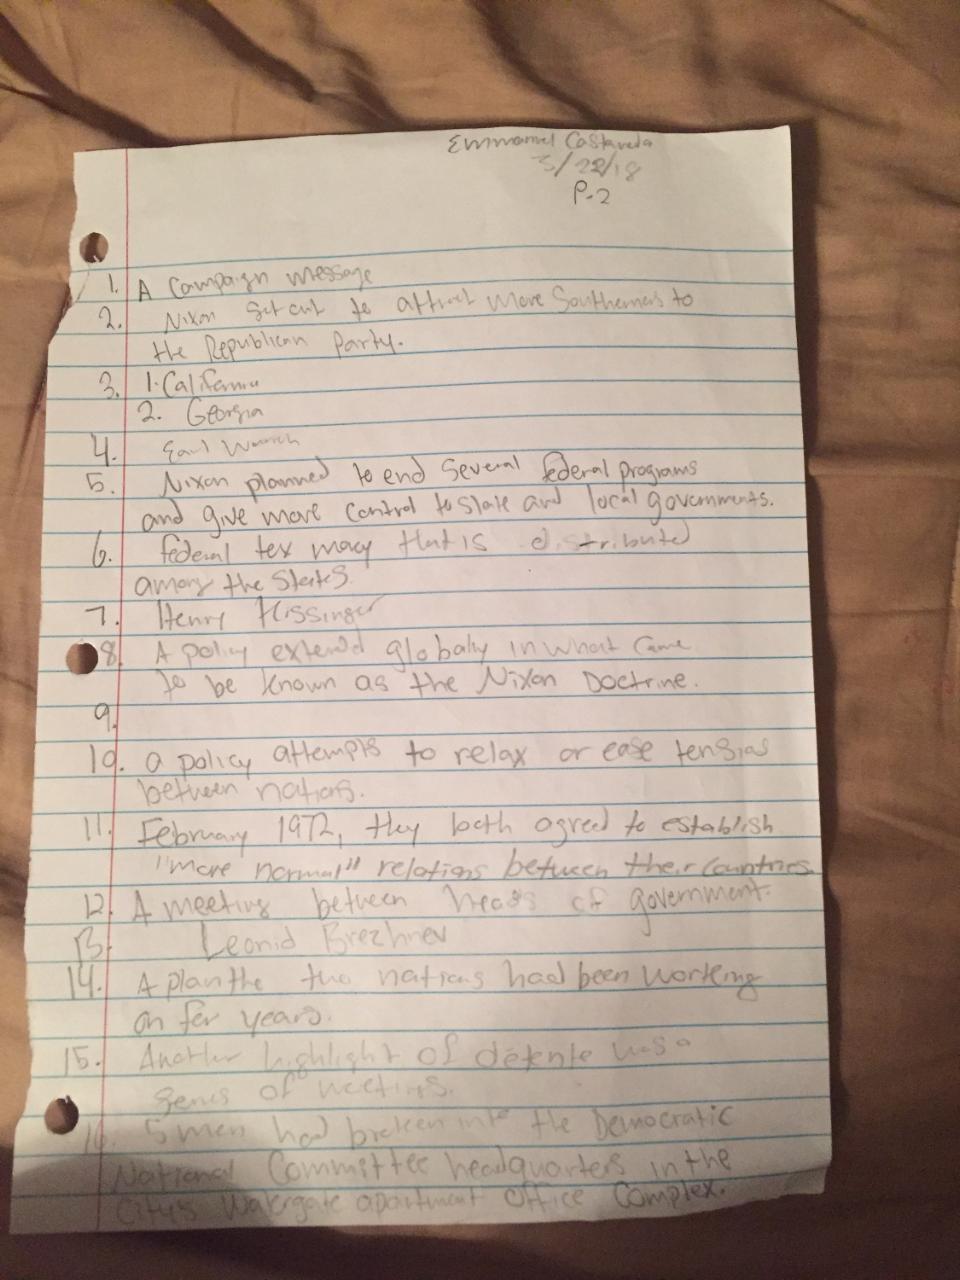 Emmanuel Castaneda
3/22/18
P-2
1. A Campaign message
2. Nixon Set out to attract More Southerners to
the Republican Party.
3. 1. California
2. Georgia
4. Earl
5. Nixon planned to end Several federal programs
and give more Control to State and local governments.
6. federal tex that is distributed
among the States.
7. Henry Kissinger
8. A policy globally in what Came
to be known as the Nixon Doctrine.
9.
10. a policy attempts to relax or ease tensions
between nations.
11. February 1972, they both agreed to establish
"more normal" relations between their Countries.
12. A meeting between heads of government.
13. Leonid Brezhnev
14. A plan the two nations had been working
on for years.
15. Another highlight of détente was a
series of meetings.
16. 5 men had broken into the Democratic
National Committee headquarters in the
City's apartment office Complex.